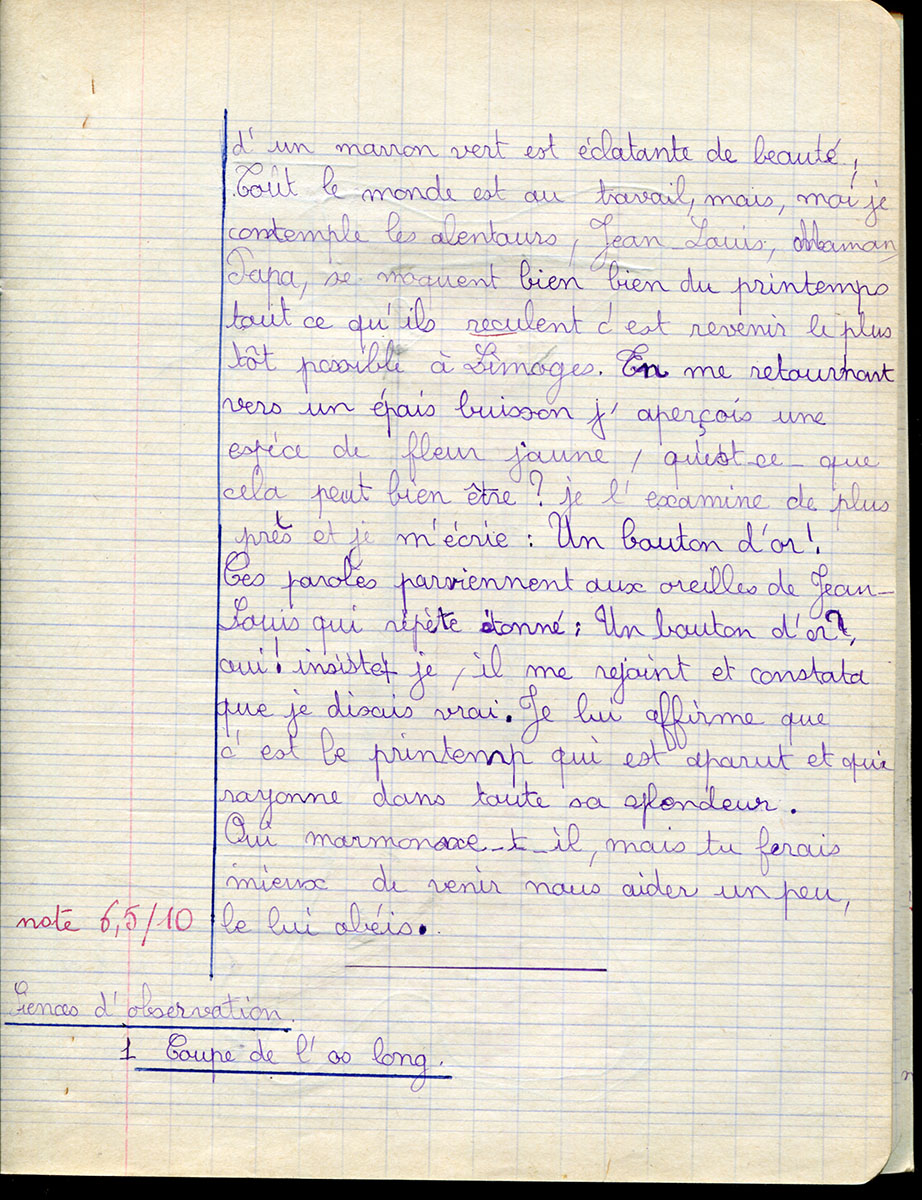 d'un marron vert est éclatante de beauté,
Tout le monde est au travail, mais, moi je
contemple les alentours, Jean-Louis, Maman,
Papa, se moquent bien bien du printemps
tout ce qu'ils reculent c'est revenir le plus
tôt possible à Limoges. En me retournant
vers un épais buisson j'aperçois une
espéce de fleur jaune, qu'est-ce-que
cela peut bien être ? je l'examine de plus
près et je m'écrie : Un bouton d'or !.
Ces paroles parviennent aux oreilles de Jean-
Louis qui répète étonné : Un bouton d'or ?,
oui ! insistet je, il me rejoint et constata
que je disais vrai. Je lui affirme que
c'est le printemp qui est aparut et qui
rayonne dans toute sa splendeur.
Oui marmonne-t-il, mais tu ferais
mieux de venir nous aider un peu,
note 6,5/10 Je lui obéis.
Siences d'observation.
1 Coupe de l'os long.